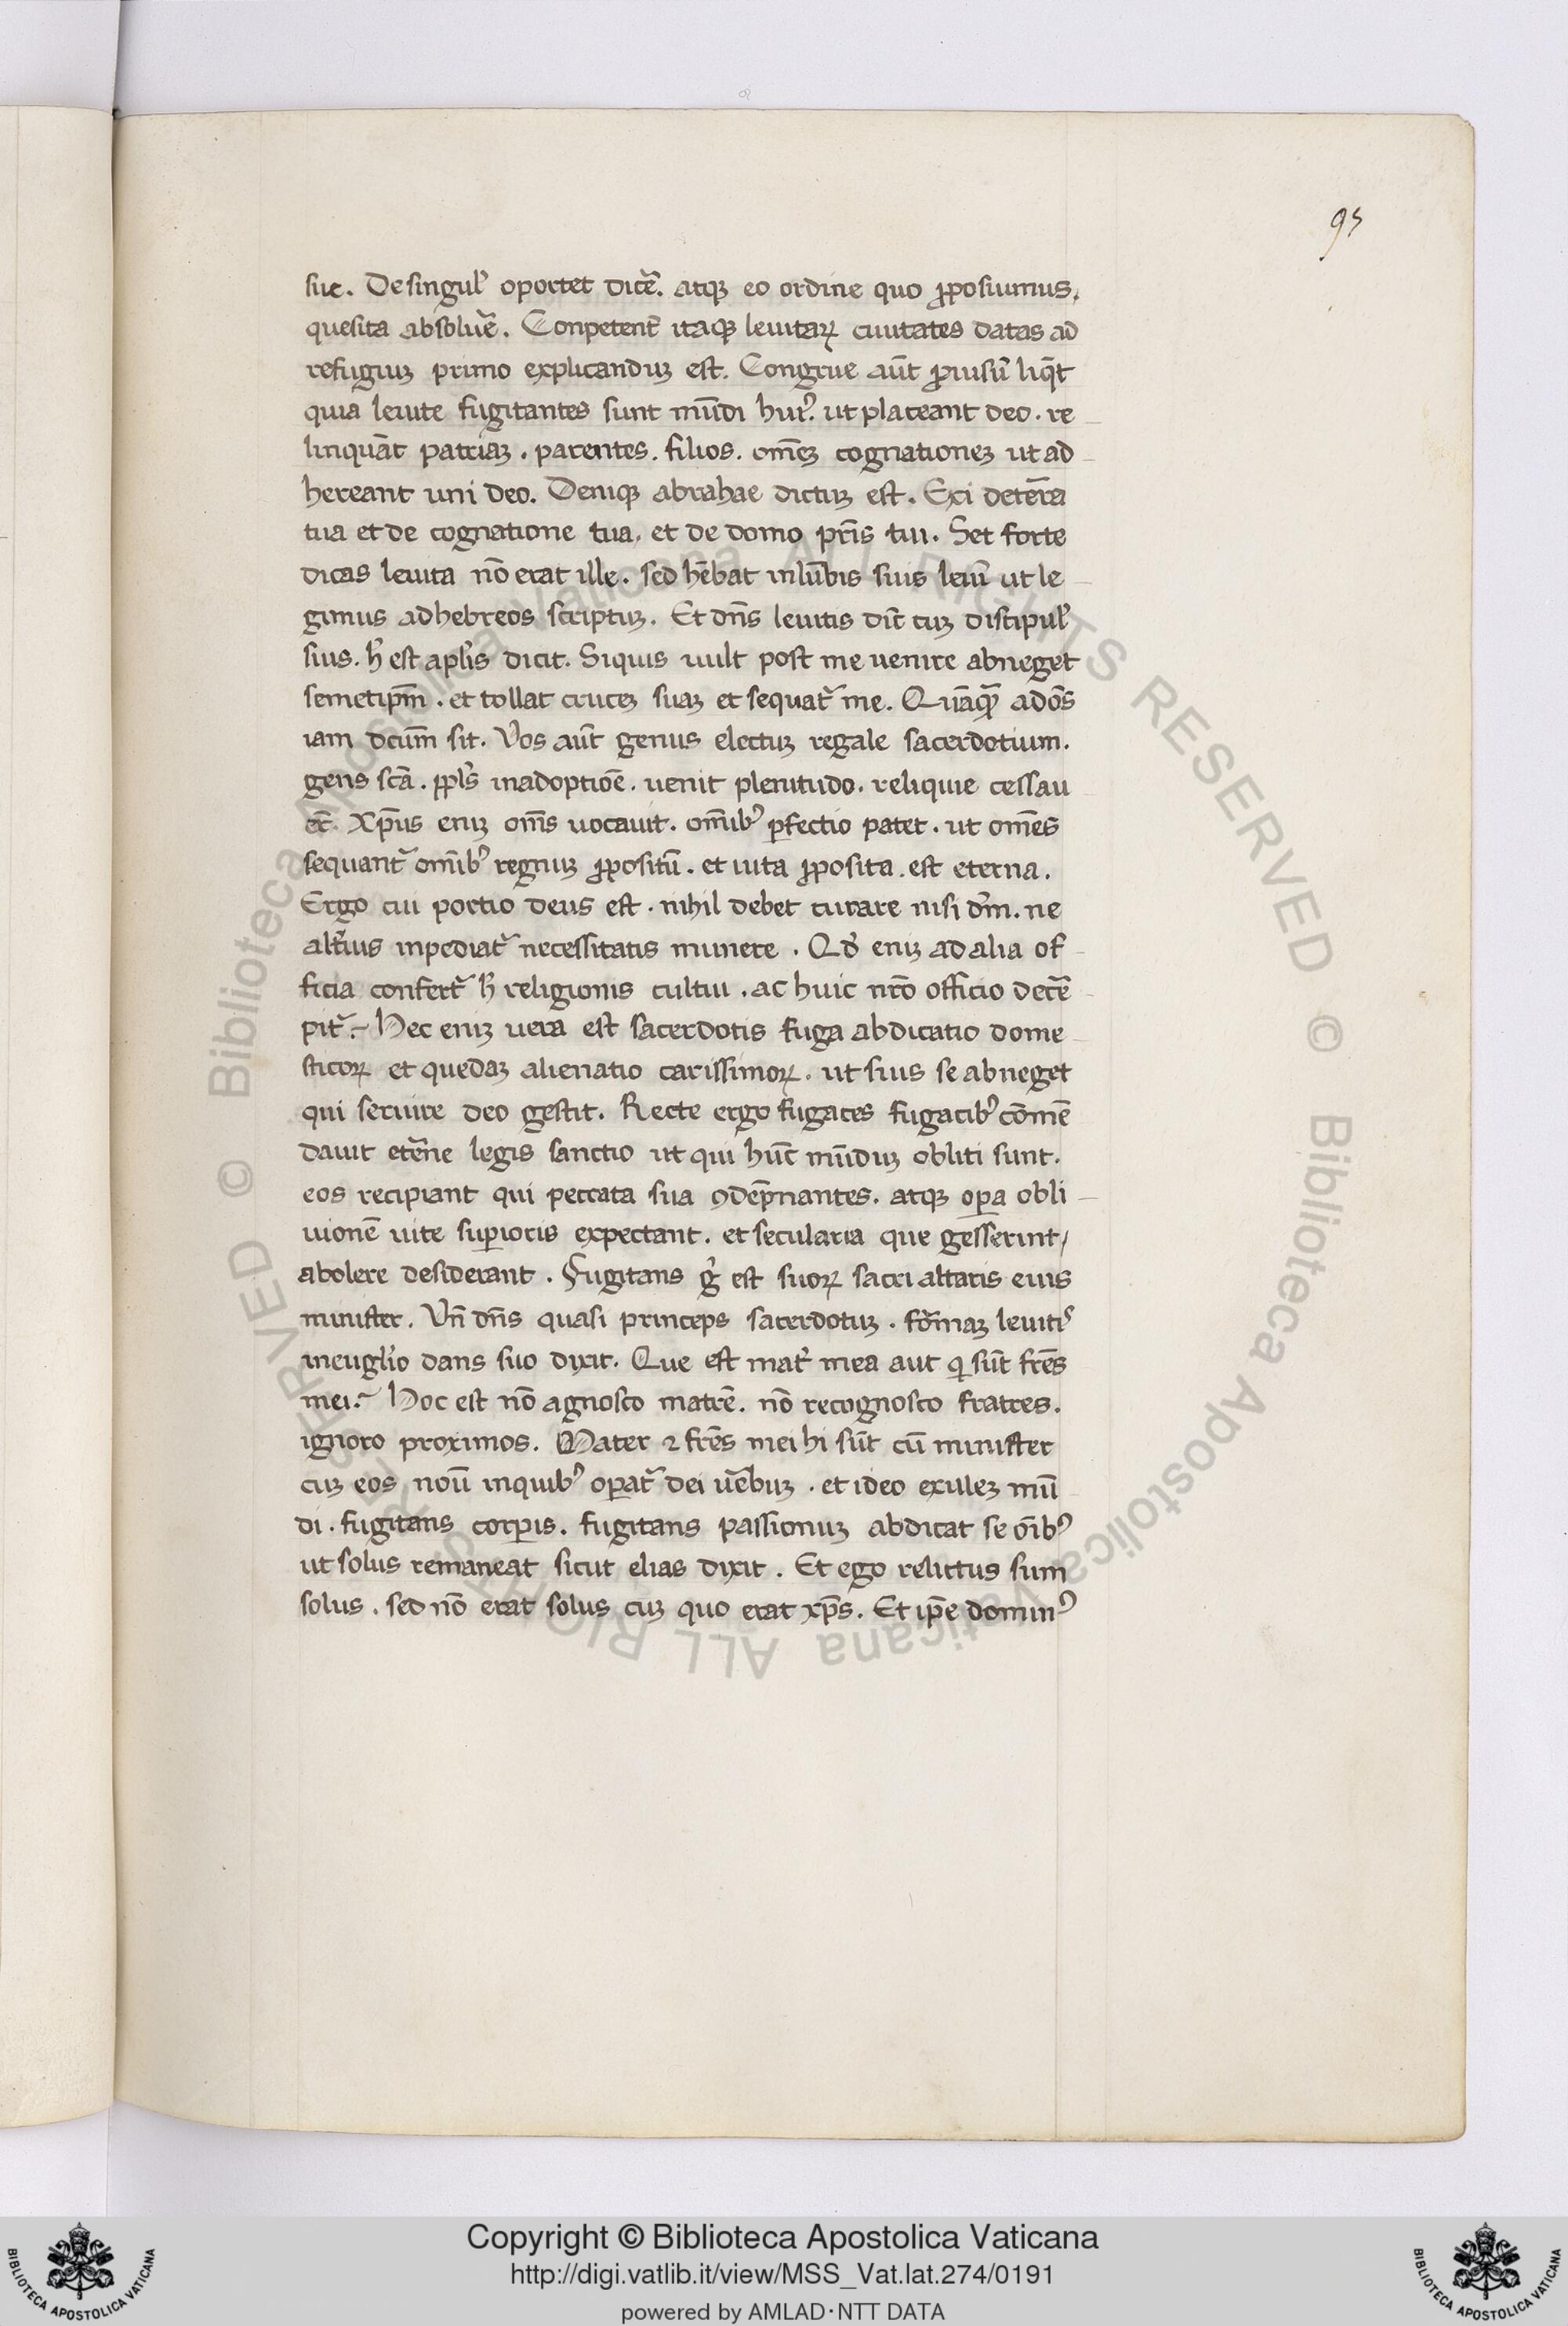 95
sue. De singul᷒ oportet dic̄e. atqꝫ eo ordine quo ꝓposuimus,
quesita absolue᷒. Conpetent̄ itaqꝫ leuitaꝝ ciuitates datas ad
refugiuꝫ primo explicanduꝫ est. Congrue aūt ꝓuisū liq̄t
quia leuite fugitantes sunt mūdi huiꝰ. ut placeant deo. re
linquāt patriaꝫ. parentes. filios. om̄eꝫ cognationeꝫ ut ad
hereant uni deo. Deniqꝫ abrahae dictuꝫ est. Exi de terra
tua et de cognatione tua. et de domo pr̄is tui. Set forte
dicas leuita nō erat ille. sed hēbat in lūbis suis leuī ut le
gimus ad hebreos scriptuꝫ. Et dn̄s leuitis dīc cuꝫ discipul᷒
suis. h̄ est aplīs dicit. Siquis uult post me uenire abneget
semetipm̄. et tollat cruceꝫ suaꝫ et sequat᷒ me. Quāqᷓ ad om̄s
iam dcūm sit. Vos aūt genus electuꝫ regale sacerdotium.
gens scā. ppls̄ in adoptiōe. uenit plenitudo. reliquie cessau
er̄. Xp̄us eniꝫ om̄s uocauit. om̄ibꝰ ꝑfectio patet. ut om̄es
sequant᷒ om̄ibꝰ regnuꝫ ꝓpositū. et uita ꝓposita. est eterna.
Ergo cui portio deus est. nihil debet curare nisi dm̄. ne
alt̄ius inpediat᷒ necessitatis munere. Qd̄ eniꝫ ad alia of
ficia confert᷒ h̄ religionis cultui. ac huic nr̄o officio decē
pit᷒. Hec eniꝫ uera est sacerdotis fuga abdicatio dome
sticoꝝ et quedaꝫ alienatio carissimoꝝ. ut suis se abneget
qui seruire deo gestit. Recte ergo fugaces fugacibꝰ cōmē
dauit et̄ne legis sanctio ut qui hūc mūduꝫ obliti sunt.
eos recipiant qui peccata sua ꝯdēpnantes. atqꝫ oꝑa obli
uionē uite suꝑioris expectant. et secularia que gesserint/
abolere desiderant. Fugitans g̊ est suoꝝ sacri altaris eius
minister. Vn̄ dn̄s quasi princeps sacerdotuꝫ. formaꝫ leuitiꝰ
in euglīo dans suo dixit. Que est mat᷒ mea aut q̄ sūt fr̄es
mei. Hoc est nō agnosco matrē. nō recognosco fratres.
ignoro proximos. Mater ⁊ fr̄es mei hi sūt cū minister
cuꝫ eos nouī in quibꝰ oꝑat᷒ dei ūbuꝫ. et ideo exuleꝫ mū
di. fugitans corꝑis. fugitans passionuꝫ abdicat se oībꝰ
ut solus remaneat sicut elias dixit. Et ego relictus sum
solus. sed nō erat solus cuꝫ quo erat xp̄s. Et ip̄e dominꝰ
© Biblioteca Apostolica Vaticana ALL RIGHTS RESERVED © Biblioteca Apostolica Vaticana ALL RIGHTS RESERVED
Copyright © Biblioteca Apostolica Vaticana
http://digi.vatlib.it/view/MSS_Vat.lat.274/0191
powered by AMLAD·NTT DATA
BIBLIOTECA APOSTOLICA VATICANA
BIBLIOTECA APOSTOLICA VATICANA